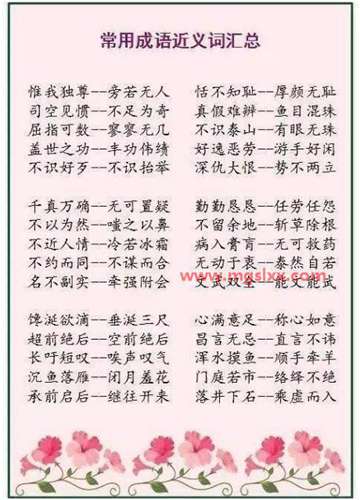 常用成语近义词汇总
惟我独尊--旁若无人 恬不知耻--厚颜无耻
司空见惯--不足为奇 真假难辨--鱼目混珠
屈指可数--寥寥无几 不识泰山--有眼无珠
盖世之功--丰功伟绩 好逸恶劳--游手好闲
不识好歹--不识抬举 深仇大恨--势不两立
千真万确--无可置疑 勤勤恳恳--任劳任怨
不以为然--嗤之以鼻 不留余地--斩草除根
不近人情--冷若冰霜 病入膏肓--无可救药
不约而同--不谋而合 无动于衷--泰然自若
www.mgslxx.com
名不副实--牵强附会 文武双全--能文能武
馋涎欲滴--垂涎三尺 心满意足--称心如意
超前绝后--空前绝后 昌言无忌--直言不讳
长吁短叹--唉声叹气 浑水摸鱼--顺手牵羊
沉鱼落雁--闭月羞花 门庭若市--络绎不绝
承前启后--继往开来 落井下石--乘虚而入